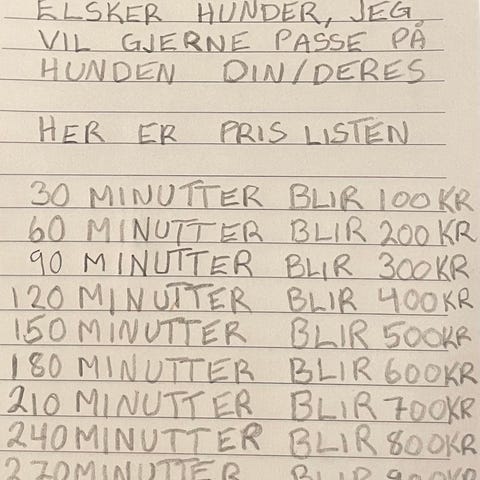 ELSKER HUNDER, JEG
VIL GJERNE PASSE PÅ
HUNDEN DIN/DERES
HER ER PRISLISTEN
30 MINUTTER BLIR 100KR
60 MINUTTER BLIR 200KR
90 MINUTTER BLIR 300KR
120 MINUTTER BLIR 400KR
150 MINUTTER BLIR 500KR
180 MINUTTER BLIR 600KR
210 MINUTTER BLIR 700KR
240 MINUTTER BLIR 800KR
270 MINUTTER BLIR 900KR